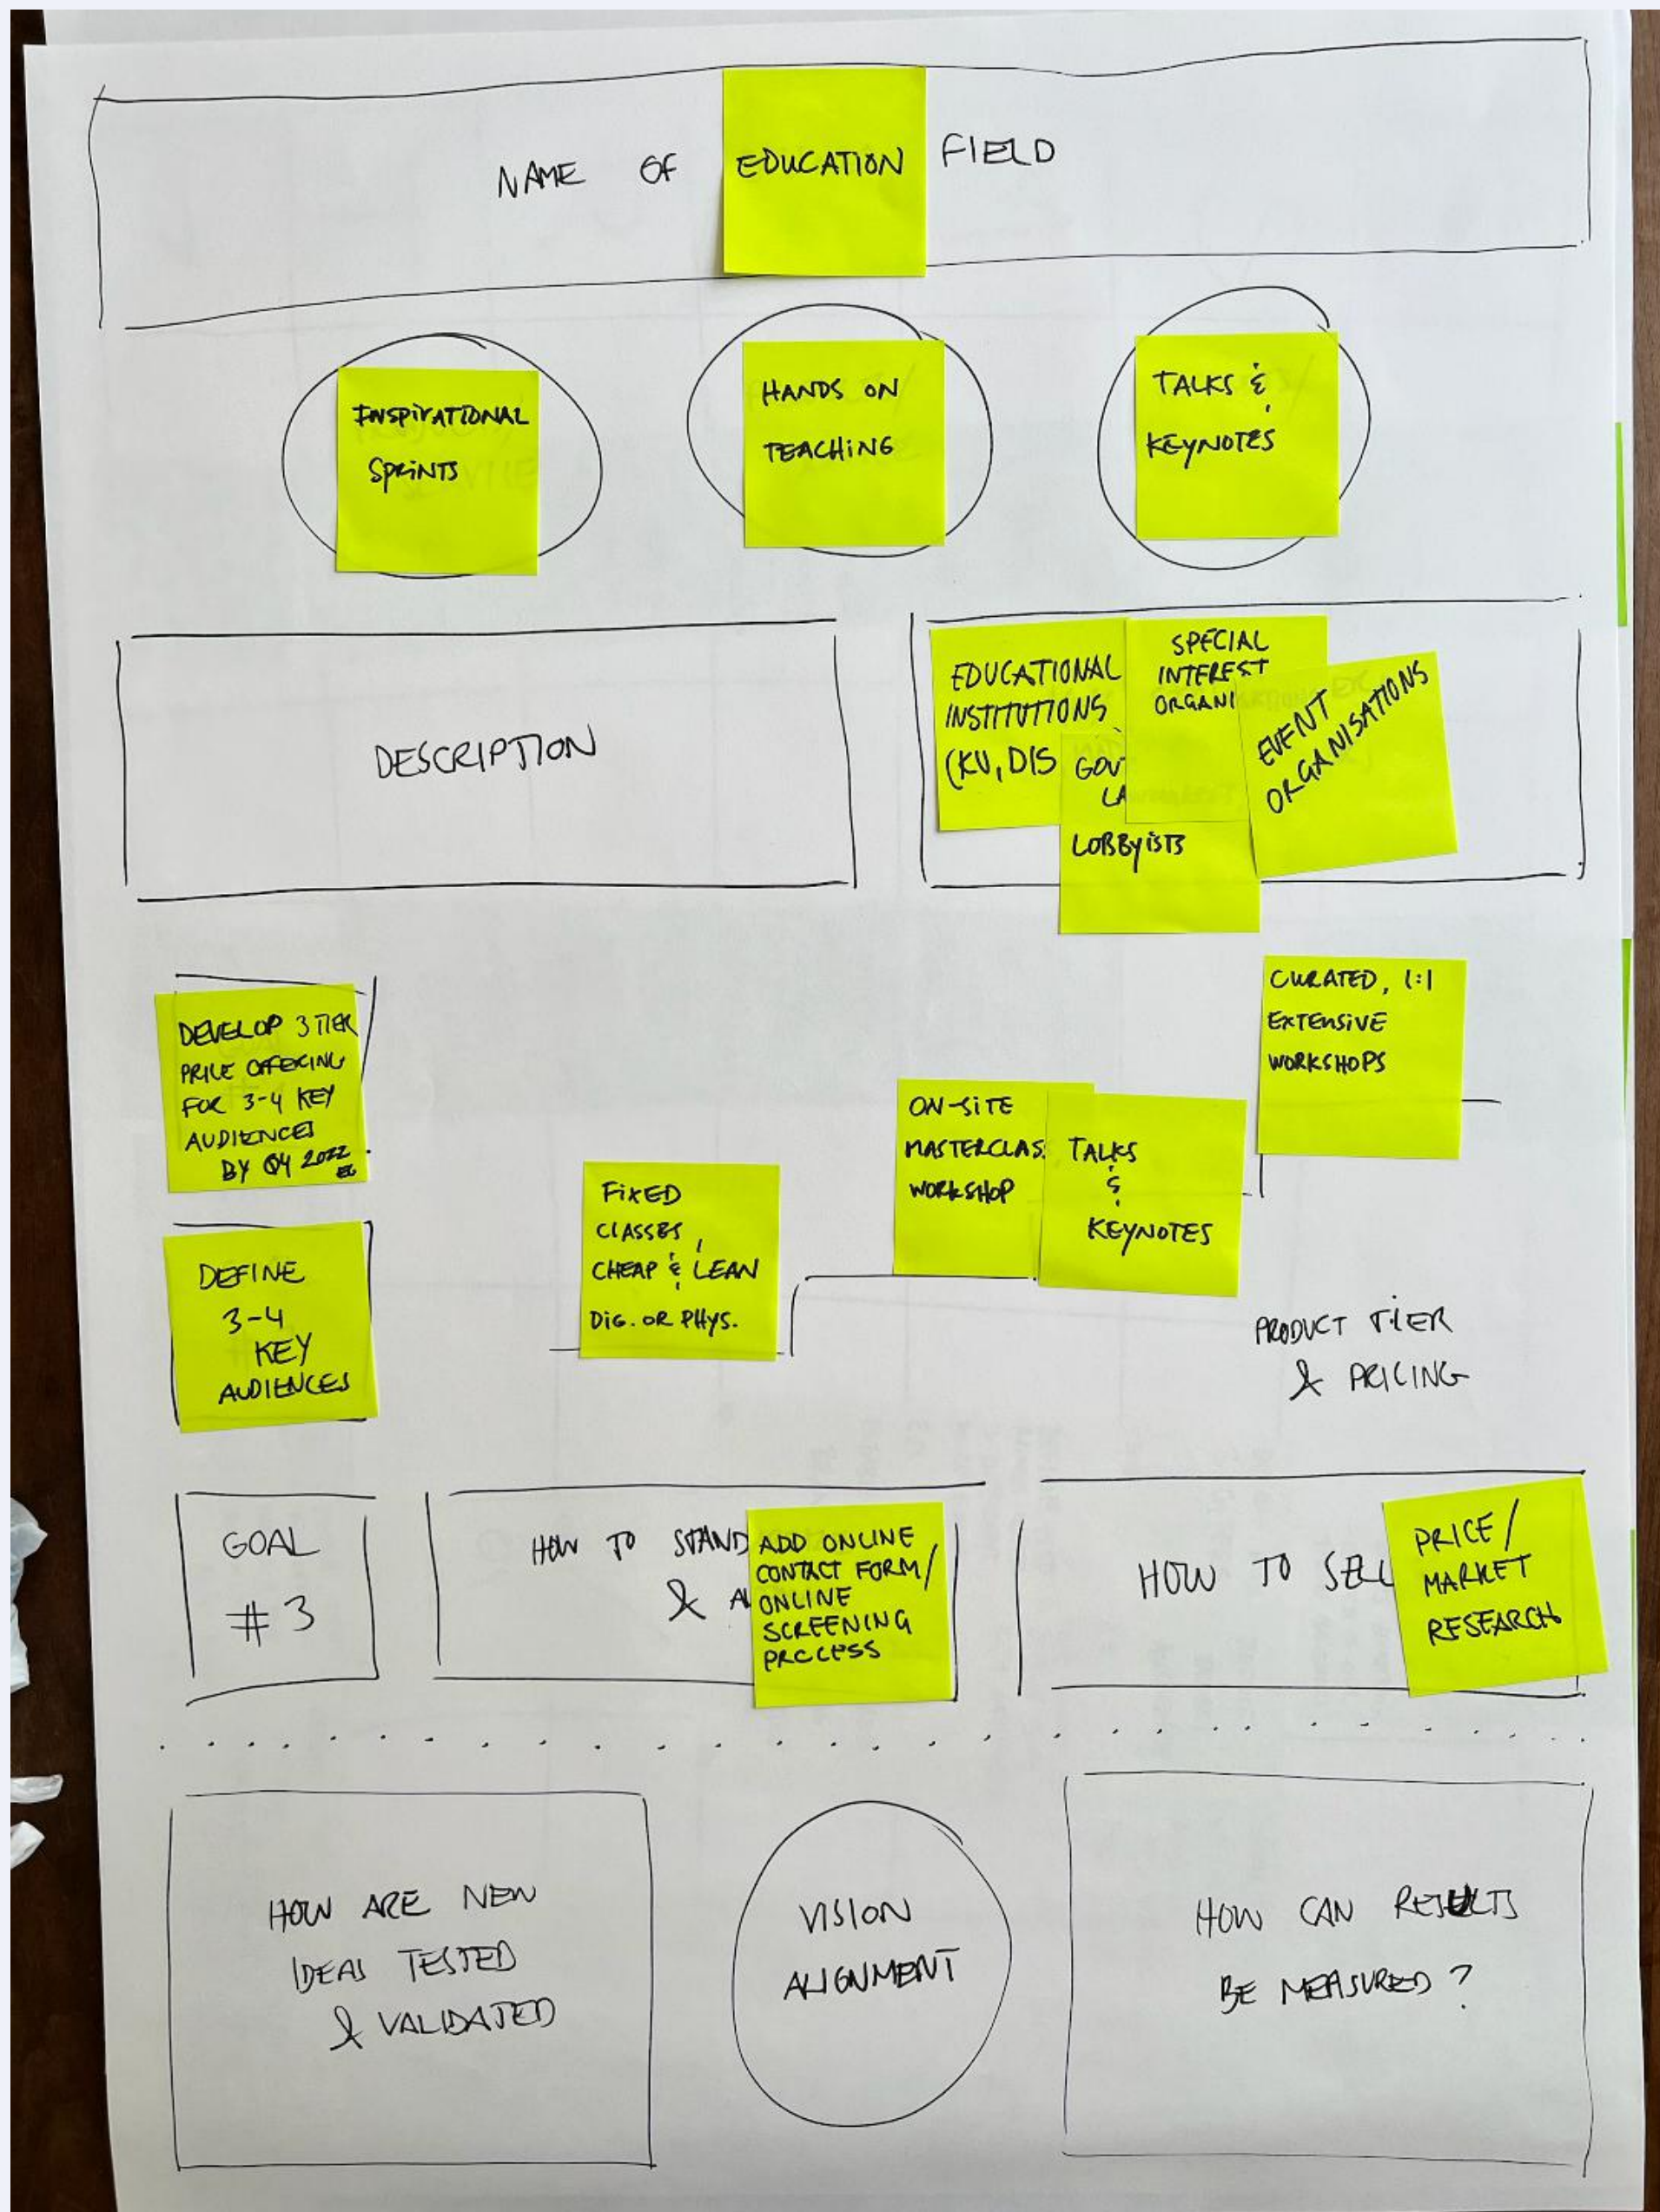 NAME OF EDUCATION FIELD
INSPIRATIONAL
SPRINTS
HANDS ON
TEACHING
TALKS &
KEYNOTES
DESCRIPTION
EDUCATIONAL
INSTITUTIONS
(KU, DIS
SPECIAL
INTEREST
ORGANI
GOV
LA
LOBBYISTS
EVENT
ORGANISATIONS
DEVELOP 3 TIER
PRICE OFFERING
FOR 3-4 KEY
AUDIENCES
BY Q4 2022
DEFINE
3-4
KEY
AUDIENCES
FIXED
CLASSES,
CHEAP & LEAN
DIG. OR PHYS.
ON-SITE
MASTERCLAS
WORKSHOP
TALKS
&
KEYNOTES
CURATED, 1:1
EXTENSIVE
WORKSHOPS
PRODUCT TIER
& PRICING
GOAL
#3
HOW TO STAND
& A
ADD ONLINE
CONTACT FORM/
ONLINE
SCREENING
PROCESS
HOW TO SELL
PRICE/
MARKET
RESEARCH
HOW ARE NEW
IDEAS TESTED
& VALIDATED
VISION
ALIGNMENT
HOW CAN RESULTS
BE MEASURED?